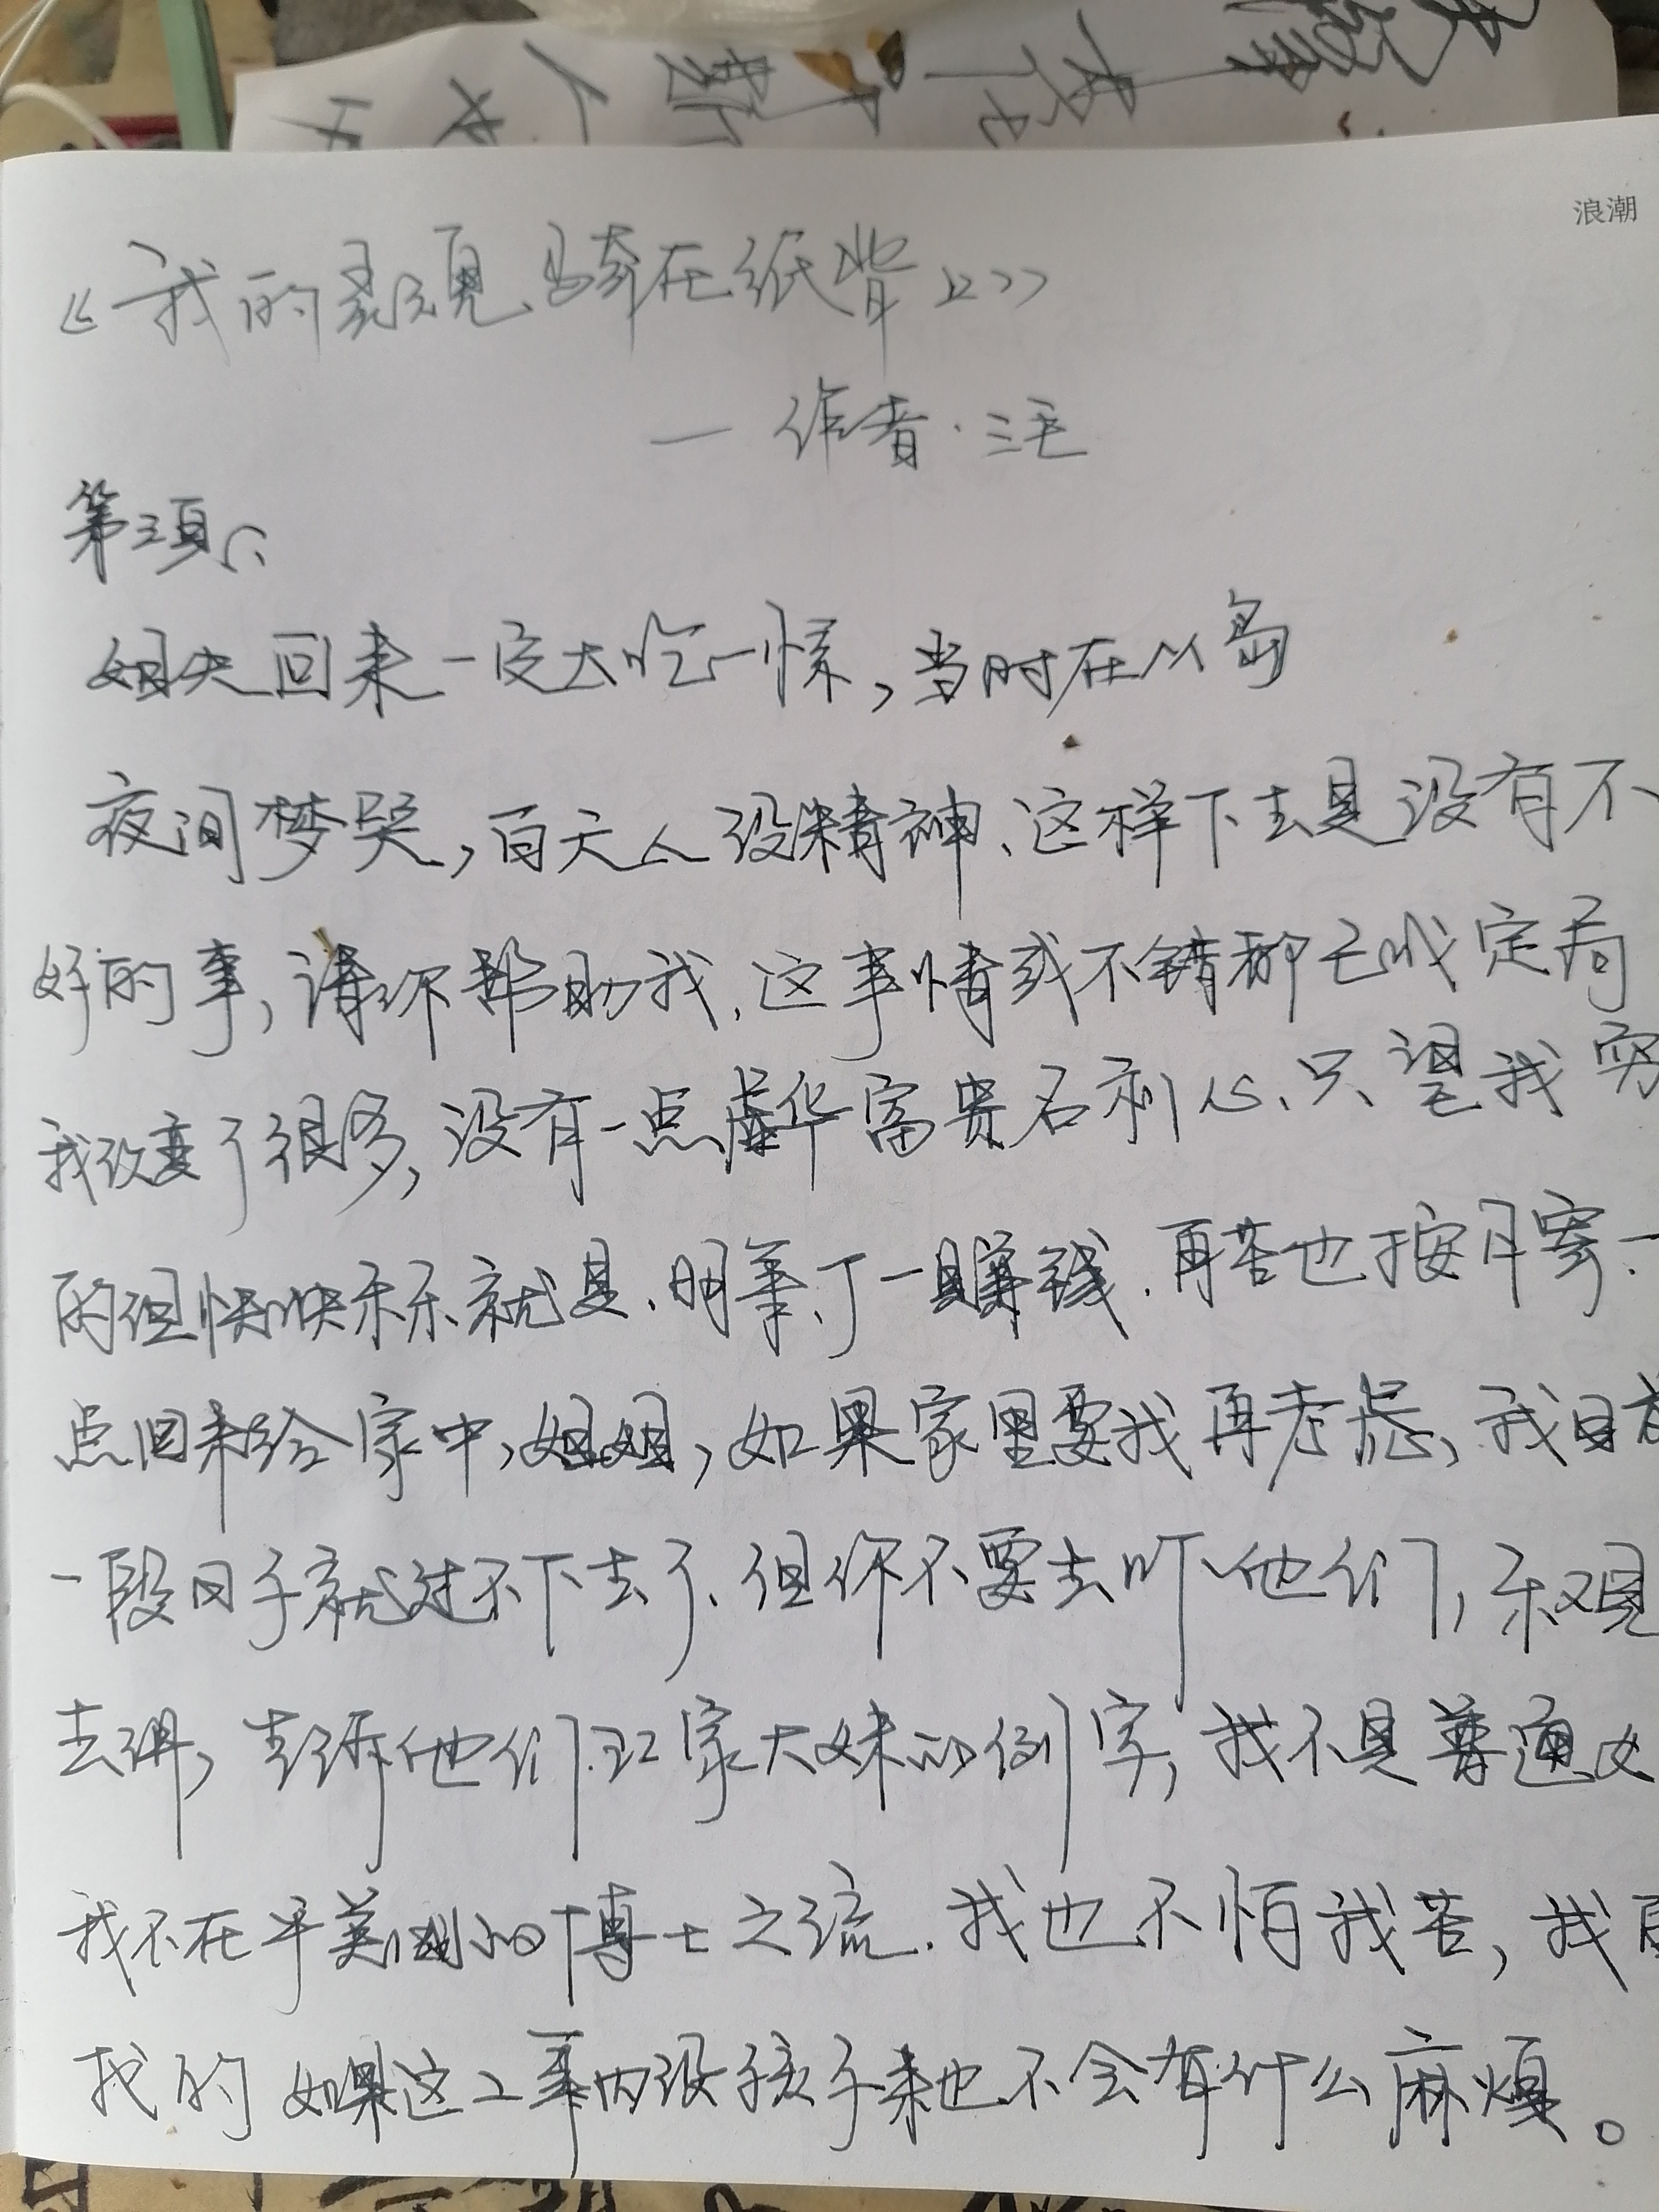 浪潮
《我的灵魂骑在纸背上》
— 作者·三毛
第三页
姐夫回来一定大吃一惊,当时在从岛
夜间梦哭,白天人没精神、这样下去是没有不
好的事,请你帮助我.这事情或不错都已成定局
我改变了很多,没有一点虚华富贵名利心、只望我穷
的但快快乐乐就是.明年了一赚钱.再苦也按月寄一
点回来给家中,姐姐,如果家里要我再考虑,我目前
一段日子就过不下去了、但你不要去吓他们,乐观
去讲,告诉他们江家大妹的例字,我不是普通女
我不在乎美国的博士之流.我也不怕我苦,我
我的 如果这二年内没孩子来也不会有什么麻烦。